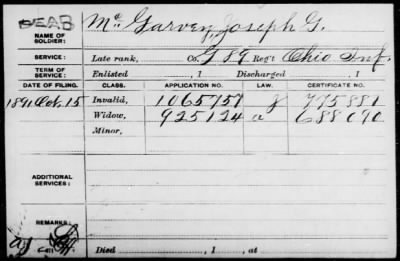 DEAB
NAME OF SOLDIER: McGarvey, Joseph G.
SERVICE: Late rank, Co. G 89 Reg't Ohio Inf.
TERM OF SERVICE: Enlisted , 1 Discharged , 1
DATE OF FILING. CLASS. APPLICATION NO. LAW. CERTIFICATE NO.
1891 Oct. 15 Invalid, 1065757 J 775881
Widow, 925124 a 688090
Minor,
ADDITIONAL SERVICES:
REMARKS:
Died , 1 , at